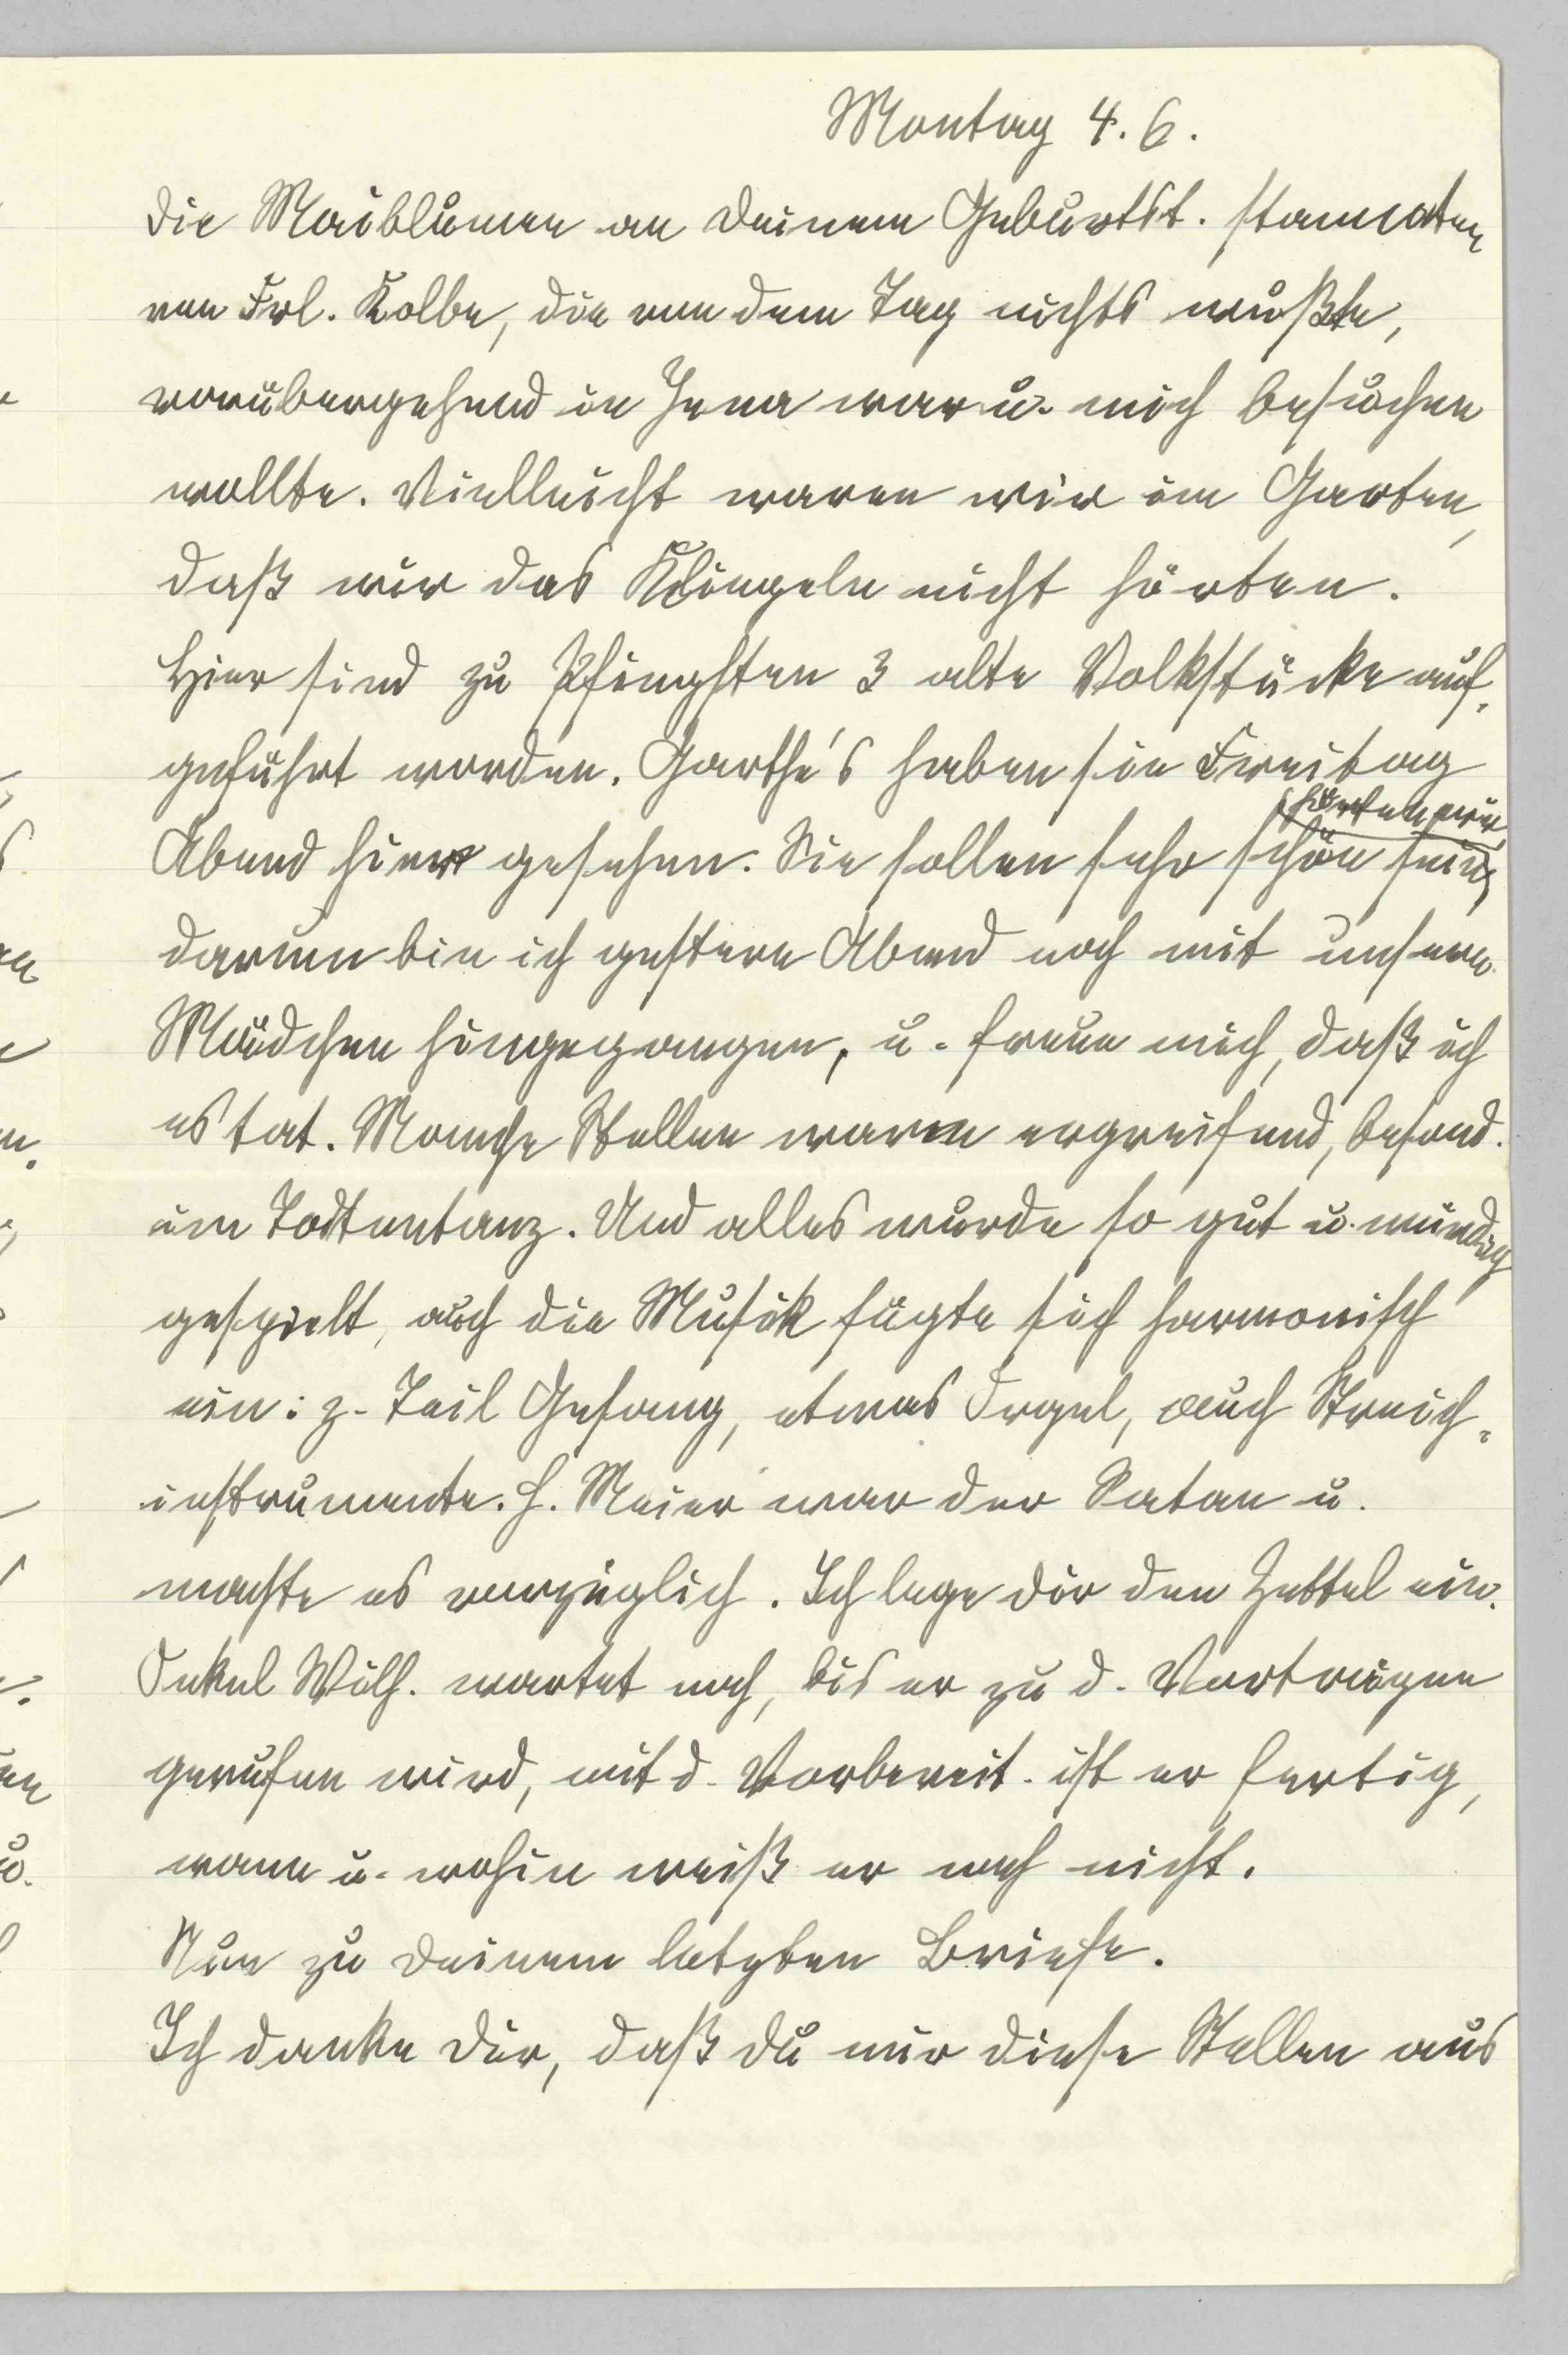 Montag 4. 6.
Die Maiblumen an Deinem Geburtst. stammten
von Frl. Kolbe, die von dem Tag nichts wußte,
vorübergehend in Jena war u. mich besuchen
wollte. Vielleicht waren wir im Garten,
daß wir das Klingeln nicht hörten.
Hier sind zu Pfingsten 3 alte Volkstücke auf-
geführt worden. Garthe's haben sie Freitag
hörten wir,
Abend hier gesehen. Sie sollen sehr schön sein,
darum bin ich gestern Abend noch mit unserm
Mädchen hingegangen, u. freue mich, daß ich
es tat. Manche Stellen waren ergreifend, besond.
im Todtentanz. Und alles wurde so gut u. würdig
gespielt, auch die Musik fügte sich harmonisch
ein: z. Teil Gesang, etwas Orgel, auch Streich-
instrumente. H. Meier war der Satan u.
machte es vorzüglich. Ich lege Dir den Zettel ein.
Onkel Wilh. wartet noch, bis er zu d. Vorträgen
gerufen wird, mit d. Vorbereit. ist er fertig,
wann u. wohin weiß er noch nicht.
Nun zu Deinem letzten Briefe.
Ich danke Dir, daß Du mir diese Stellen aus